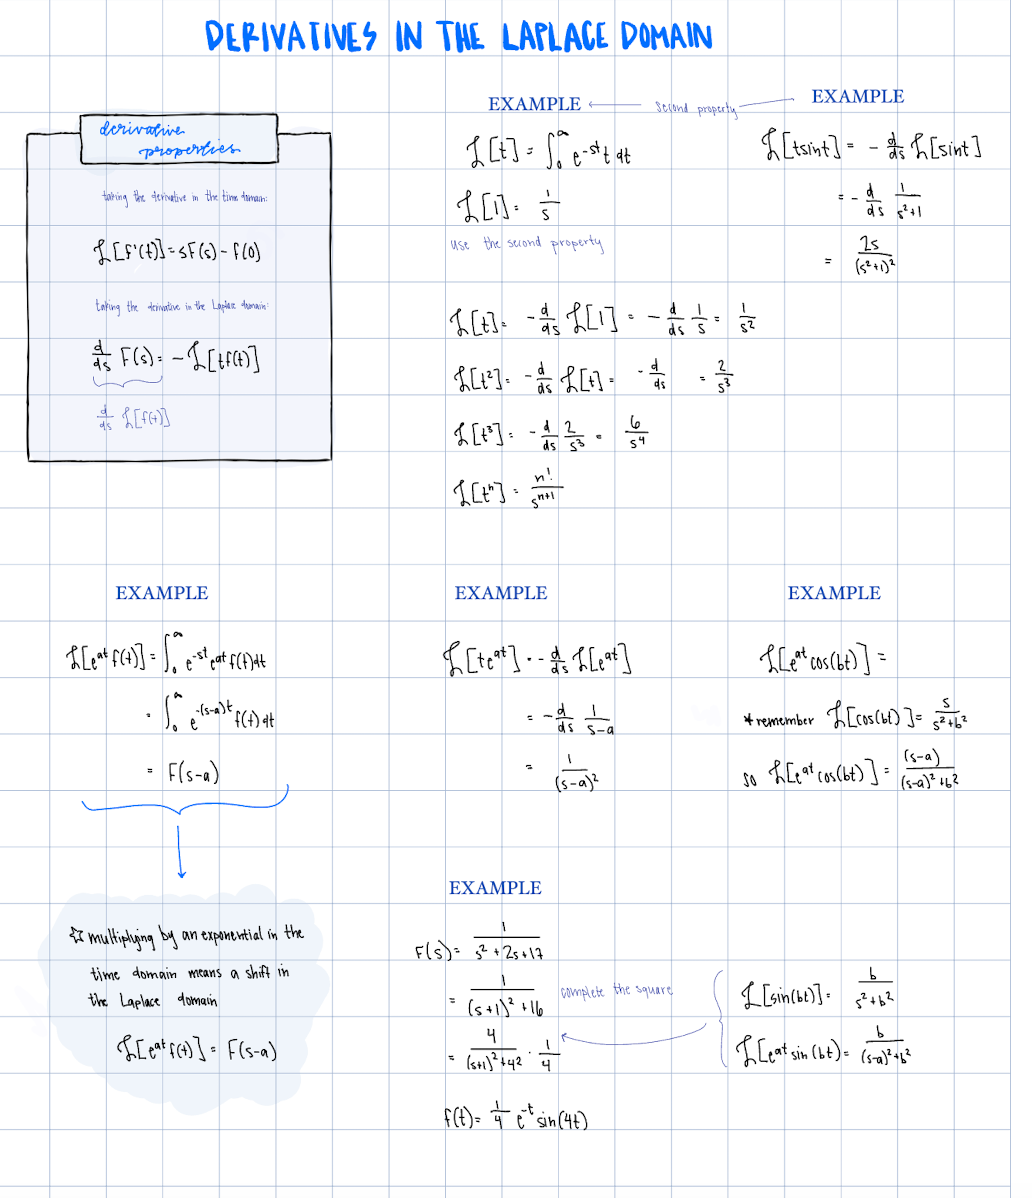 DERIVATIVES IN THE LAPLACE DOMAIN
derivative
properties
taking the derivative in the time domain:
ℒ[f'(t)] = sF(s) - f(0)
taking the derivative in the Laplace domain:
d/ds F(s) = -ℒ[tf(t)]
d/ds ℒ[f(t)]
EXAMPLE ← second property → EXAMPLE
ℒ[t] = ∫₀^∞ e^-st t dt
ℒ[1] = 1/s
use the second property
ℒ[t] = -d/ds ℒ[1] = -d/ds 1/s = 1/s²
ℒ[t²] = -d/ds ℒ[t] = -d/ds = 2/s³
ℒ[t³] = -d/ds 2/s³ = 6/s⁴
ℒ[tⁿ] = n!/s^n+1
ℒ[tsint] = -d/ds ℒ[sint]
= -d/ds 1/s²+1
= 2s/(s²+1)²
EXAMPLE
ℒ[e^at f(t)] = ∫₀^∞ e^-st e^at f(t)dt
= ∫₀^∞ e^-(s-a)t f(t)dt
= F(s-a)
☆ multiplying by an exponential in the
time domain means a shift in
the Laplace domain
ℒ[e^at f(t)] = F(s-a)
EXAMPLE
ℒ[te^at] = -d/ds ℒ[e^at]
= -d/ds 1/s-a
= 1/(s-a)²
EXAMPLE
ℒ[e^at cos(bt)] =
*remember ℒ[cos(bt)] = s/s²+b²
so ℒ[e^at cos(bt)] = (s-a)/(s-a)²+b²
EXAMPLE
F(s) = 1/s²+2s+17
= 1/(s+1)²+16 complete the square
= 4/(s+1)²+4² · 1/4
f(t) = 1/4 e^-t sin(4t)
ℒ[sin(bt)] = b/s²+b²
ℒ[e^at sin(bt) = b/(s-a)²+b²